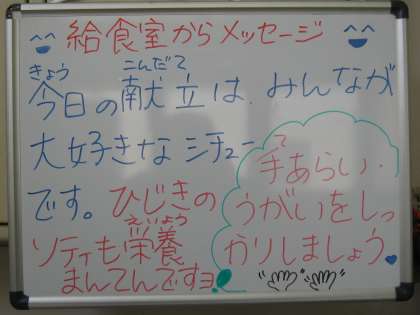 給食室からメッセージ
きょう こんだて
今日の献立は、みんなが
大好きなシチュー
です。ひじきの
えいよう
ソティも栄養
まんてんですヨ!
て
手あらい・
うがいをしっ
かりしましょう